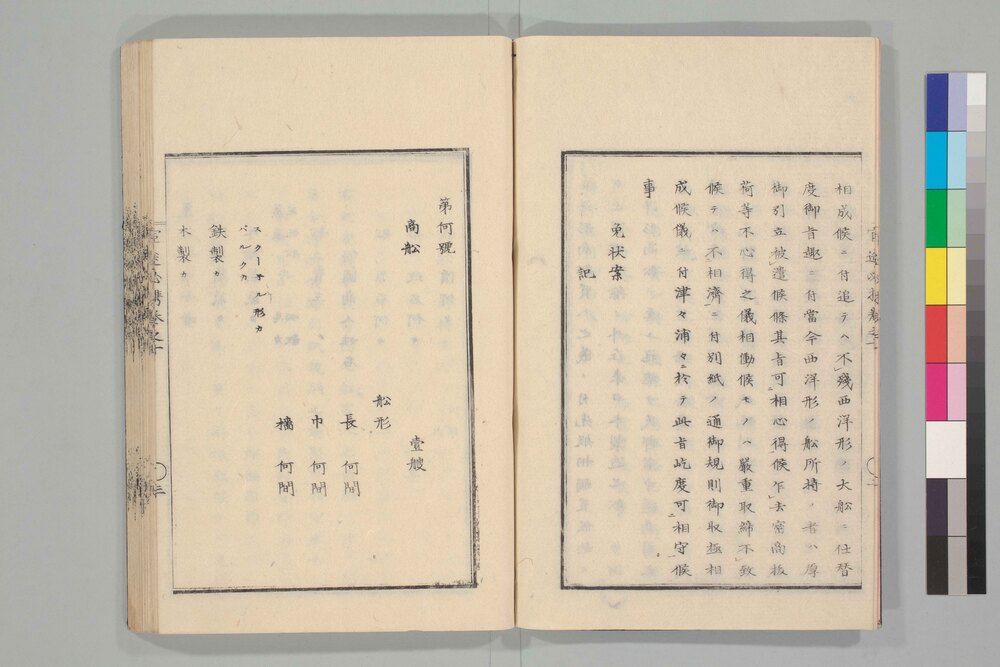 相成候ニ付追テハ不残西洋形ノ大船ニ仕替
度御旨趣ニ付當今西洋形ノ船所持ノ者ハ厚
御引立被遣候條其旨可相心得候乍去密商扱
荷等不心得之儀相働候モノハ嚴重取締不致
候テハ不相濟ニ付別紙ノ通御規則御取極相
成候儀ニ付津々浦々ニ於テ此旨屹度可相守候
事
免状案
記
第何號
商舩 壹艘
舩形
長 何間
巾 何間
檣 何間
スクーネル形カ
バルクカ
鉄製カ
木製カ